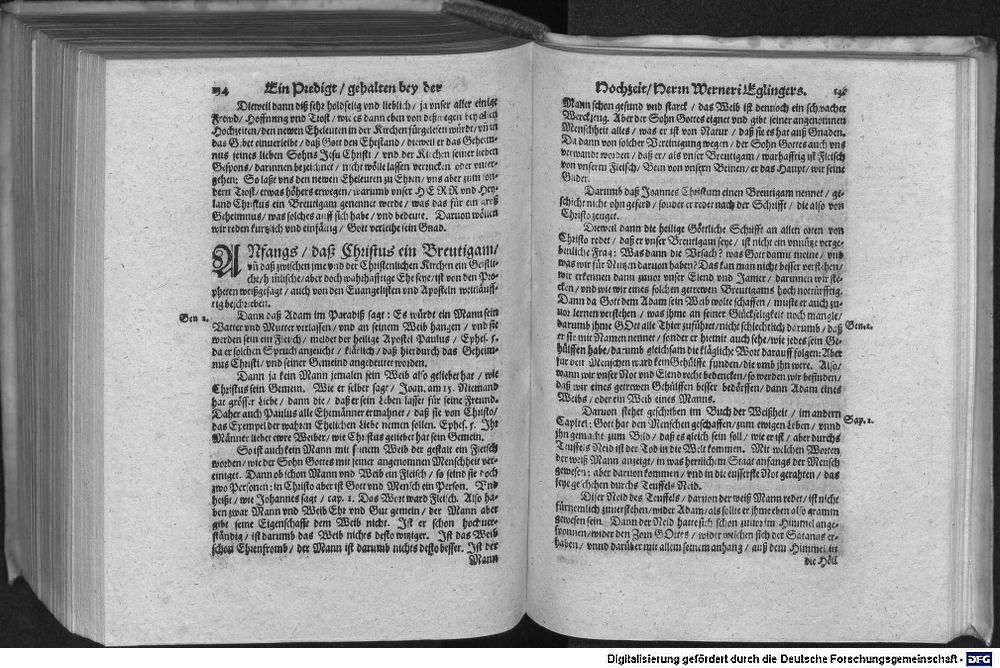 Ein Predigt / gehalten bey der
Dieweil dann diß sehr holdselig vnd lieblich / ja vnser aller einige
Frewd / Hoffnung vnd Trost / wie es dann eben von deßwegen bey allen
Hochzeiten / den newen Eheleuten in der Kirchen fürgelesen würdt / vñ in
das Gebet einuerleibt / daß Gott den Ehestand / dieweil er das Geheim-
nus seines lieben Sohns Jesu Christi / vnd der Kirchen seiner lieben
Gespons / darinnen bezeichnet / nicht wölle lassen verrucken oder vnter-
gehen: So laßt vns den newen Eheleuten zu Ehren / vns aber zum son-
dern Trost / etwas höhers erwegen / warumb vnser HERR vnd Hey-
land Christus ein Breutigam genennet werde / was das für ein groß
Geheimnus / was solches auff sich habe / vnd bedeute. Daruon wöllen
wir reden kurtzlich vnd einfältig / Gott verleihe sein Gnad.
ANfangs / daß Christus ein Breutigam /
vñ daß zwischen jme vnd der Christenlichen Kirchen ein Geistli-
che / himlische / aber doch wahrhafftige Ehe seye / ist von den Pro-
pheten weißgesagt / auch von den Euangelisten vnd Aposteln weitläuff-
tig beschrieben.
Gen 2.
Dann daß Adam im Paradiß sagt: Es würdt ein Mann sein
Vatter vnd Mutter verlassen / vnd an seinem Weib hangen / vnd sie
werden sein ein Fleisch / meldet der heilige Apostel Paulus / Ephes. 5.
da er solchen Spruch anzeucht / klärlich / daß hierdurch das Geheim-
nus Christi / vnd seiner Gemeind angedeutet worden.
Dann ja kein Mann jemalen sein Weib also geliebet hat / wie
Christus sein Gemein. Wie er selber sagt / Joan. am 15. Niemand
hat grösser Liebe / dann die / daß er sein Leben lasset für seine Freund.
Daher auch Paulus alle Ehemänner ermahnet / daß sie von Christo /
das Exempel der wahren Ehelichen Liebe nemen sollen. Ephes. 5. Ihr
Männer liebet ewre Weiber / wie Christus geliebet hat sein Gemein.
So ist auch kein Mann mit seinem Weib der gestalt ein Fleisch
worden / wie der Sohn Gottes mit seiner angenomnen Menschheit ver-
einiget. Dann ob schon Mann vnd Weib ein Fleisch / so seind sie doch
zwo Personen: in Christo aber ist Gott vnd Mensch ein Person. Vnd
heißt / wie Johannes sagt / cap. 1. Das Wort ward Fleisch. Also ha-
ben zwar Mann vnd Weib Ehr vnd Gut gemein / der Mann aber
gibt seine Eigenschafft dem Weib nicht. Ist er schon hochuer-
ständig / ist darumb das Weib nichts desto witziger. Ist das Weib
schon Ehrenfromb / der Mann ist darumb nichts desto besser. Ist der
Mann
Hochzeit / Herrn Werneri Eglingers.
Mann schon gesund vnd starck / das Weib ist dennoch ein schwacher
Werckzeug. Aber der Sohn Gottes eignet vnd gibt seiner angenomnen
Menschheit alles / was er ist von Natur / daß sie es hat auß Gnaden.
Da dann von solcher Vereinigung wegen / der Sohn Gottes auch vns
verwandt worden / daß er / als vnser Breutigam / warhafftig ist Fleisch
von vnserm Fleisch / Bein von vnsern Beinen / er das Haupt / wir seine
Glider.
Darumb daß Joannes Christum einen Breutigam nennet / ge-
schicht nicht ohn geferd / sonder er redet nach der Schrifft / die also von
Christo zeuget.
Dieweil dann die heilige Göttliche Schrifft an allen orten von
Christo redet / daß er vnser Breutigam seye / ist nicht ein vnnütze verge-
benliche Frag: Was dann die Vrsach? was Gott damit meine / vnd
was wir für Nutzen daruon haben? Das kan man nicht besser verstehen /
wir erkennen dann zuuor vnser Elend vnd Jamer / darinnen wir ste-
cken / vnd wie wir eines solchen getrewen Breutigams hoch notürfftig.
Dann da Gott dem Adam sein Weib wolte schaffen / muste er auch zu-
uor lernen verstehen / was jhme an seiner Glückseligkeit noch mangle /
darumb jhme GOtt alle Thier zuführet / nicht schlechtlich darumb / daß
Gen. 2.
er sie mit Namen nennet / sonder er hiemit auch sehe / wie jedes sein Ge-
hülffen habe / darumb gleichsam die klägliche Wort darauff folgen: Aber
für den Menschen ward kein Gehülffe funden / die vmb jhn were. Also /
wann wir vnser Not vnd Elend recht bedencken / so werden wir befinden /
daß wir eines getrewen Gehülffen besser bedörffen / dann Adam eines
Weibs / oder ein Weib eines Manns.
Daruon stehet geschriben im Buch der Weißheit / im andern
Sap. 2.
Capitel: Gott hat den Menschen geschaffen / zum ewigen Leben / vnnd
jhn gemacht zum Bild / daß es gleich sein soll / wie er ist / aber durchs
Teuffels Neid ist der Tod in die Welt kommen. Mit welchen Worten
der weiß Mann anzeigt / in was herrlichem Staat anfangs der Mensch
gewesen: aber daruon kommen / vnd in die eusserste Not gerahten / das
seye geschehen durchs Teuffels Neid.
Diser Neid des Teuffels / daruon der weiß Mann redet / ist nicht
fürnemlich zuuerstehen / wider Adam / als solte er jhme eben also gramm
gewesen sein. Dann der Neid hatte sich schon zuuor im Himmel ange-
sponnen / wider den Zorn GOttes / wider welchen sich der Satanas er-
haben / vnnd darüber mit allem seinem anhang / auß dem Himmel in
die Höll
Digitalisierung gefördert durch die Deutsche Forschungsgemeinschaft - DFG